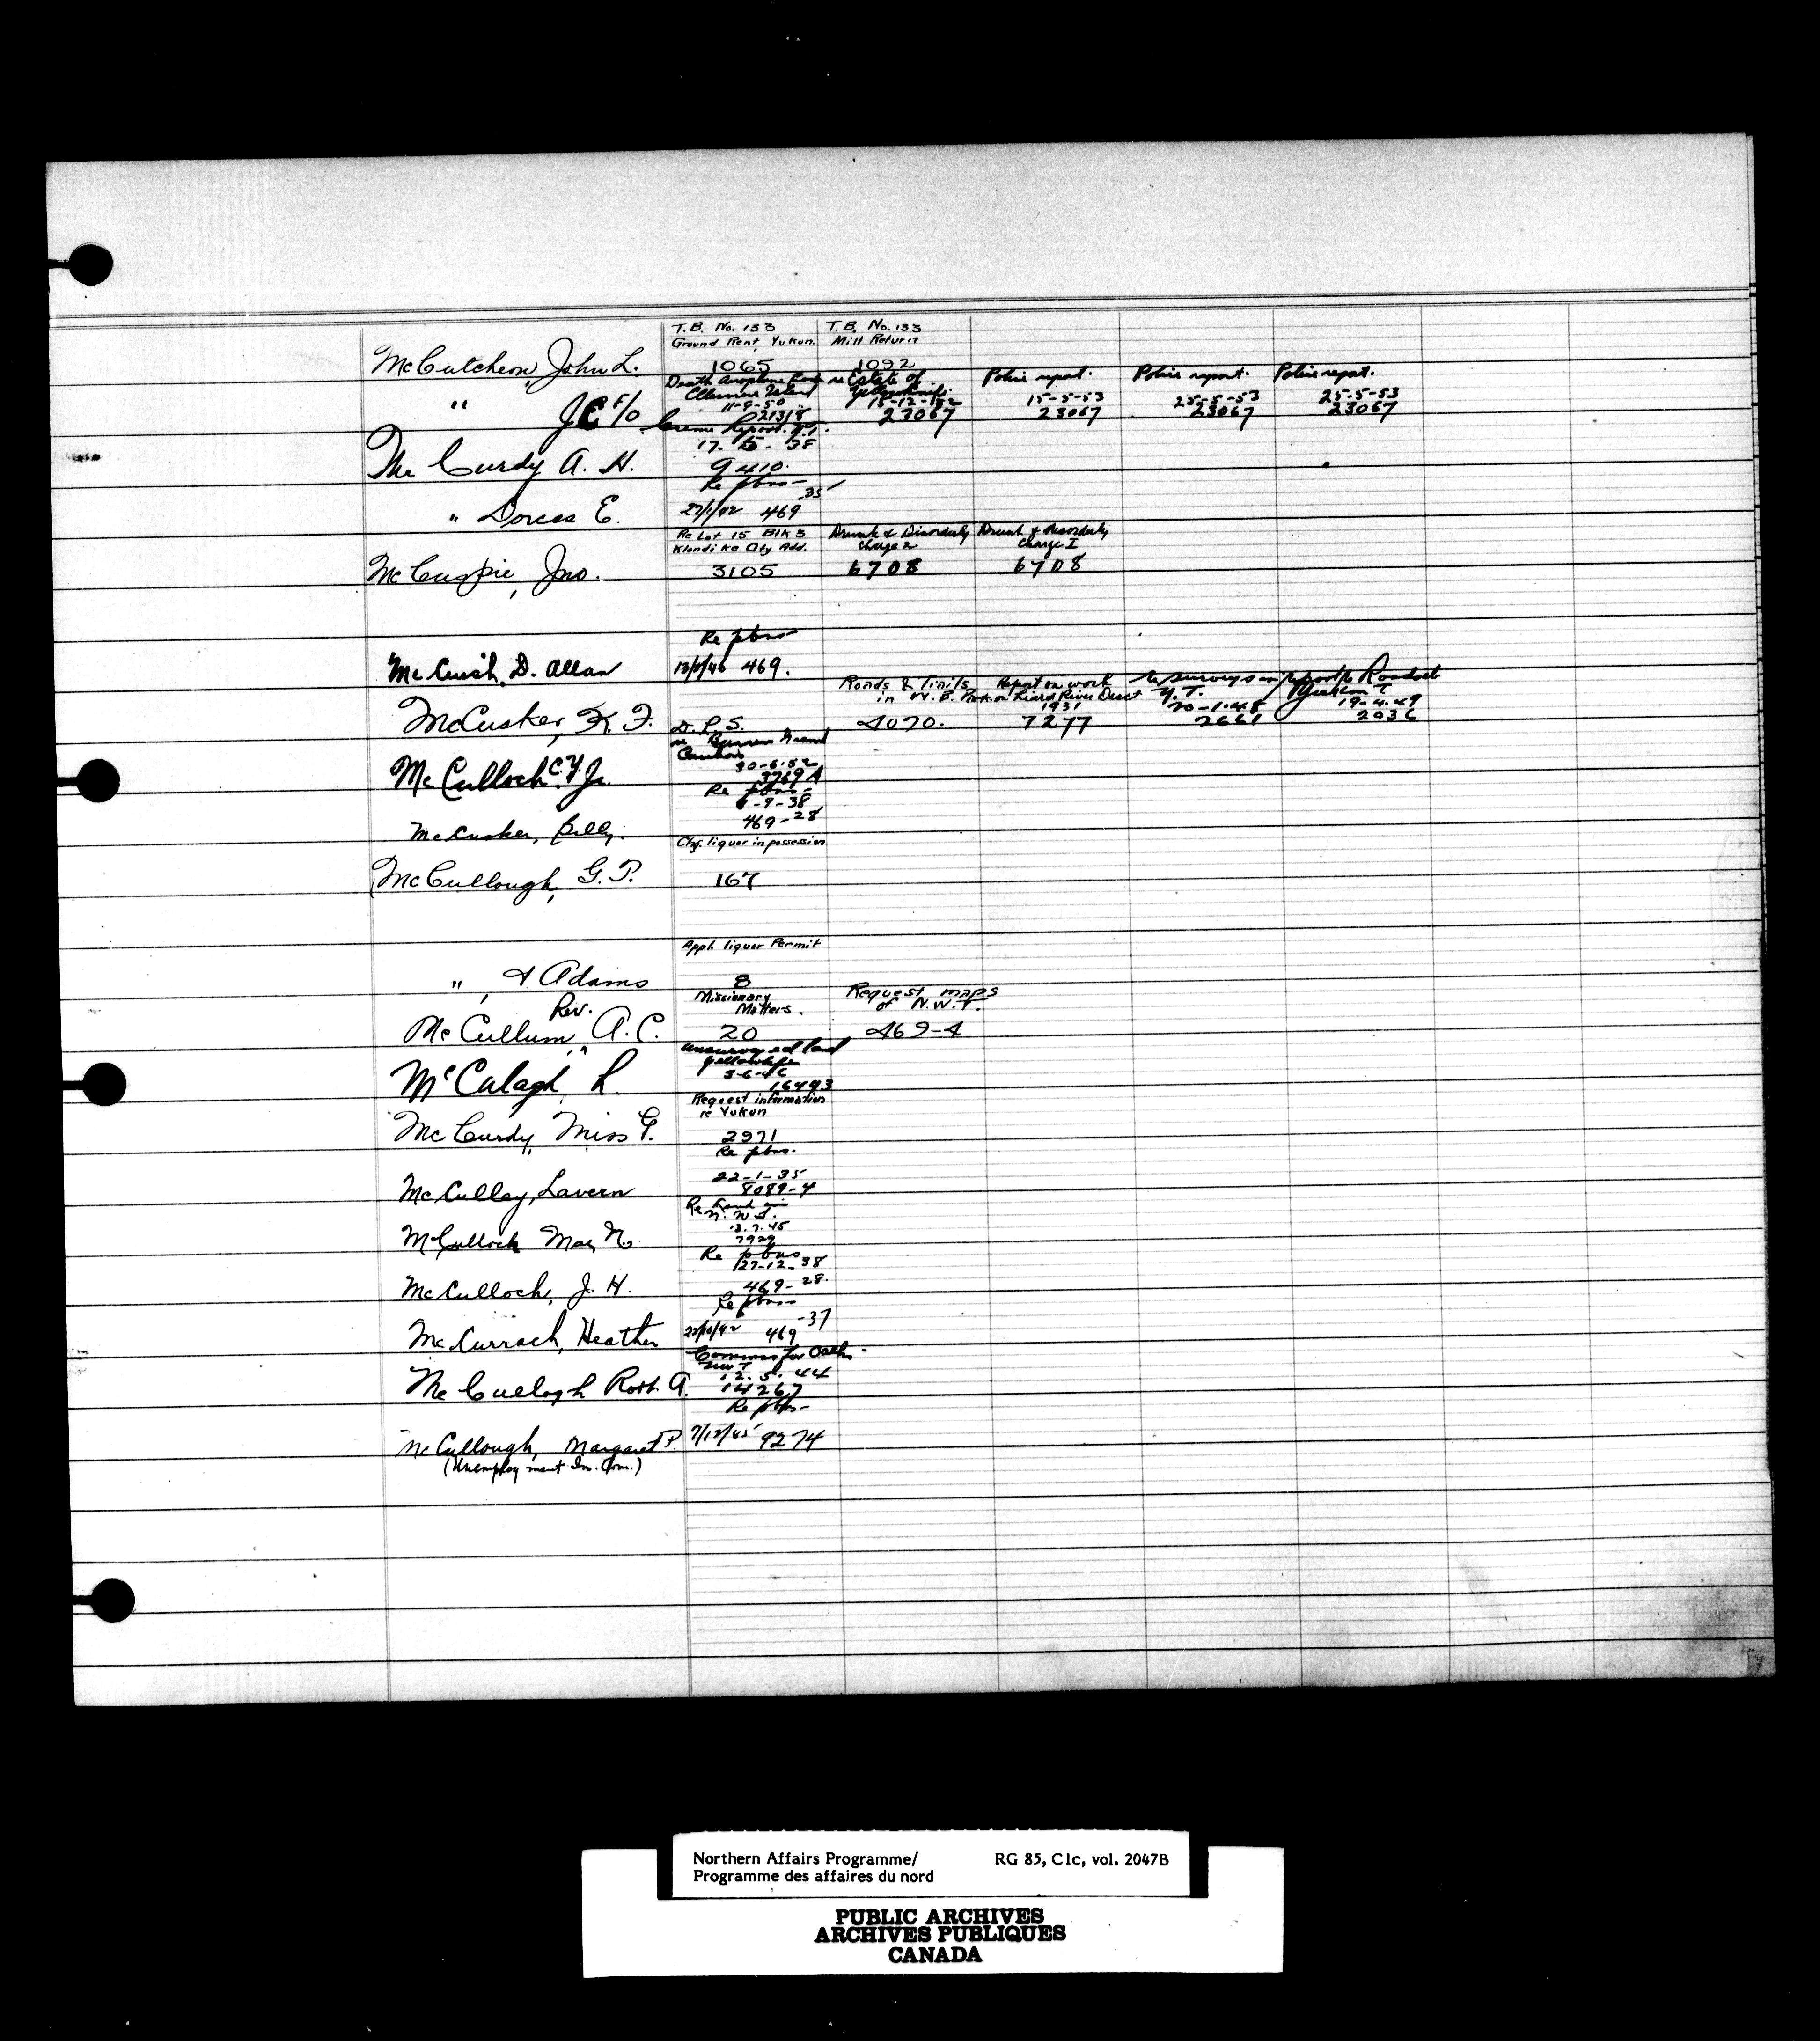 T.B. No. 133 T.B. No. 133
Ground Rent, Yukon. Mill Return
McCutcheon, John L. 1065 1092
Death Aeroplane re Estate of Police report. Police report. Police report.
Ellesmere Island Yellowknife
11-9-50 15-12-52 15-5-53 25-5-53 25-5-53
" J.C. F/O 21318 23067 23067 23067 23067
Report
Mc Curdy A. H. 9410.
Re pbns-
" Dorcas E. 27/1/42 469-35
Re Lot 15 Blk 3 Drunk & Disorderly Drunk & disorderly
Klondike City Add. Charge 2 Charge I
Jno. 3105 6708 6708
Re pbns
McCuish, D. Allan 469.
Roads & Trails Report on work re surveys in report re
in W. B. Park on Liard River Y.T. Yukon T
1931 20-1-48 19-4-49
McCusker, K. F. D.L.S. 4070. 7277 2661 2036
re Barren Ground
Caribou
30-6-52
McCulloch C.Y. Jr. 3769A
Re pbns-
-9-38
McCusker, Billy. 469-28
Chg. liquor in possession
McCullough, G. P. 167
Appl. liquor Permit
", & Adams 8
Missionary Request maps
Rev. Matters. of N.W.T.
McCullum, A. C. 20 469-4
Unsurveyed land
Yellowknife
3-6-46
McCulagh, L 16493
Request information
re Yukon
McCurdy, Miss 2971
Re pbns.
22-1-35
McCulley, Lavern 8089-4
Re Land in
N.W.T.
13.7.45
McCulloch May N. 7929
Re pbns
27-12-38
McCulloch, J. H. 469-28.
Re pbns
McCurrach, Heather 469-37
Commss for Oaths
NWT
12.5.44
McCullogh Robt. A. 14267
Re pbns-
McCullough, Margaret P. 7/12/45 9274
(Unemployment Ins. Com.)
Northern Affairs Programme/ RG 85, C1c, vol. 2047B
Programme des affaires du nord
PUBLIC ARCHIVES
ARCHIVES PUBLIQUES
CANADA